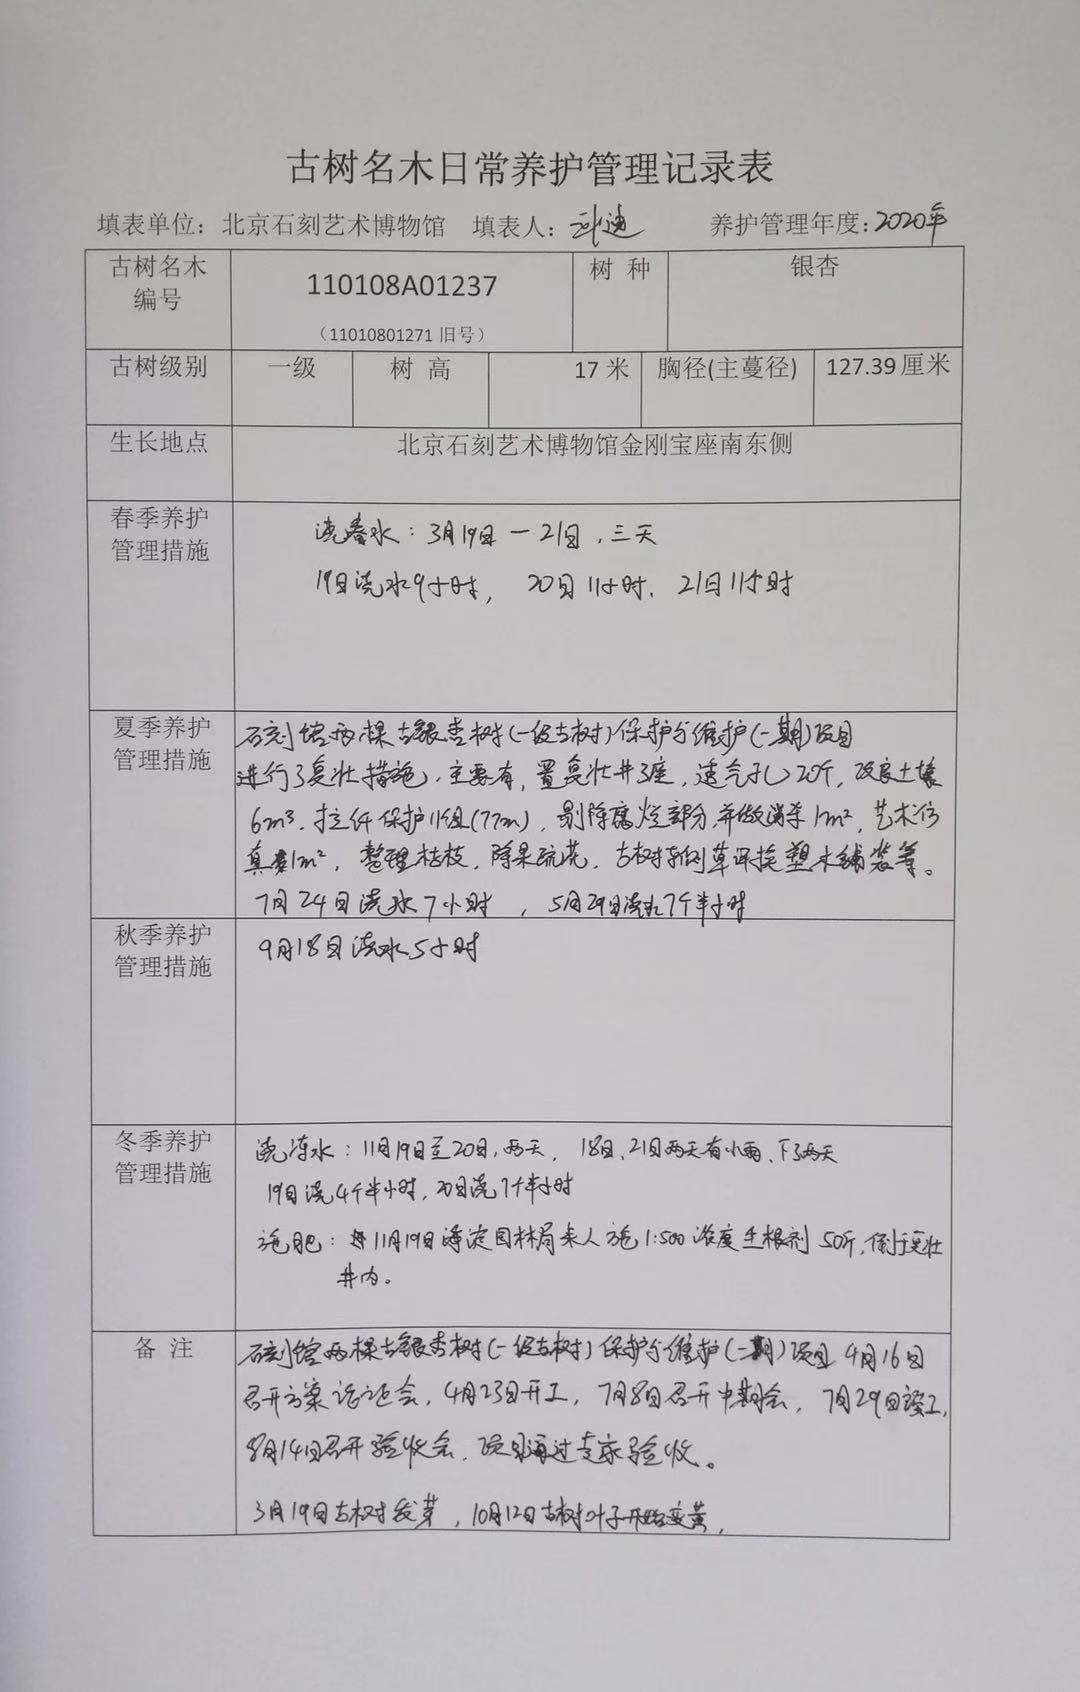 古树名木日常养护管理记录表
填表单位：北京石刻艺术博物馆 填表人： 迪 养护管理年度：2020年
古树名木编号 110108A01237 （11010801271旧号） 树种 银杏
古树级别 一级 树高 17米 胸径(主蔓径) 127.39厘米
生长地点 北京石刻艺术博物馆金刚宝座南东侧
春季养护管理措施
浇春水：3月19日－21日，三天
19日浇水9小时， 20日11小时，21日11小时
夏季养护管理措施
石刻馆两棵古银杏树(一级古树)保护与维护(一期)项目
进行了复壮措施，主要有，置复壮井3座，透气孔20个，改良土壤
6m³，拉纤保护11组(77m)，剔除腐烂部分，并做消杀1m²，艺术仿
真1m²，整理枯枝，除果疏花，古树東侧草坪换塑木铺装等。
7月24日浇水7小时 ，5月29日浇水7个半小时
秋季养护管理措施
9月18日浇水5小时
冬季养护管理措施
浇冻水：11月19日至20日，两天， 18日、21日两天有小雨、下了两天
19日浇4个半小时，20日浇7个半小时
施肥：11月19日海淀园林局来人施1:500浓度生根剂50斤，倒于复壮
井内。
备注
石刻馆两棵古银杏树(一级古树)保护与维护(二期)项目4月16日
召开方案论证会，4月23日开工，7月8日召开中期会，7月29日竣工，
8月14日召开验收会，项目通过专家验收。
3月19日古树发芽，10月12日古树叶子开始变黄，